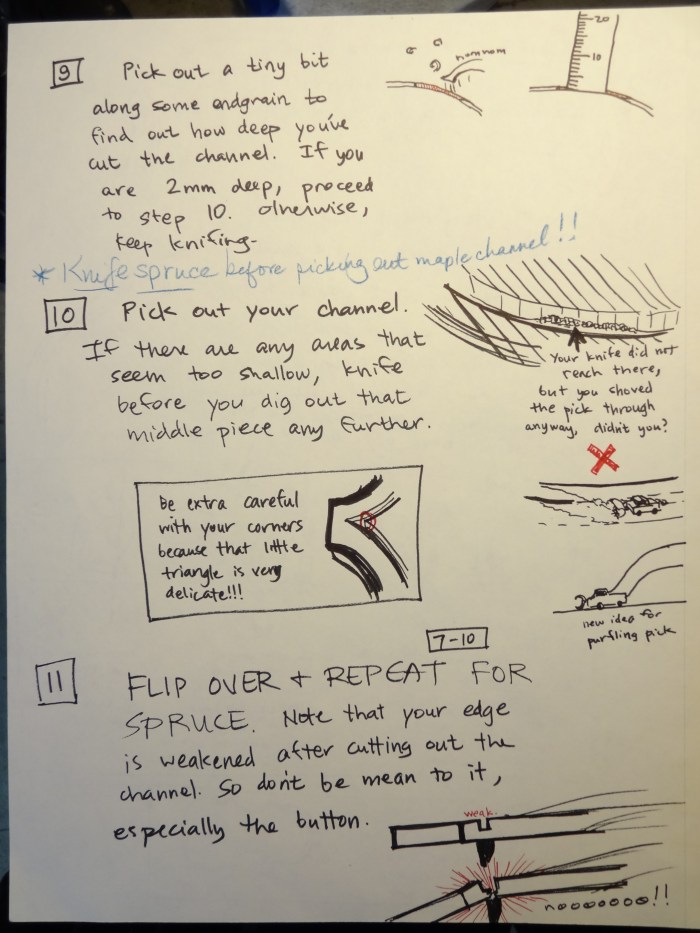 9
Pick out a tiny bit
along some endgrain to
find out how deep you've
cut the channel. If you
are 2mm deep, proceed
to step 10. otherwise,
keep knifing.
nomnom
20
10
* Knife spruce before picking out maple channel!!
10
Pick out your channel.
If there are any areas that
seem too shallow, knife
before you dig out that
middle piece any further.
Your knife did not
reach there,
but you shoved
the pick through
anyway, didn't you?
Be extra careful
with your corners
because that little
triangle is very
delicate!!!
new idea for
purfling pick
7-10
11
FLIP OVER + REPEAT FOR
SPRUCE. Note that your edge
is weakened after cutting out the
channel. So don't be mean to it,
especially the button.
weak.
noooooooo!!